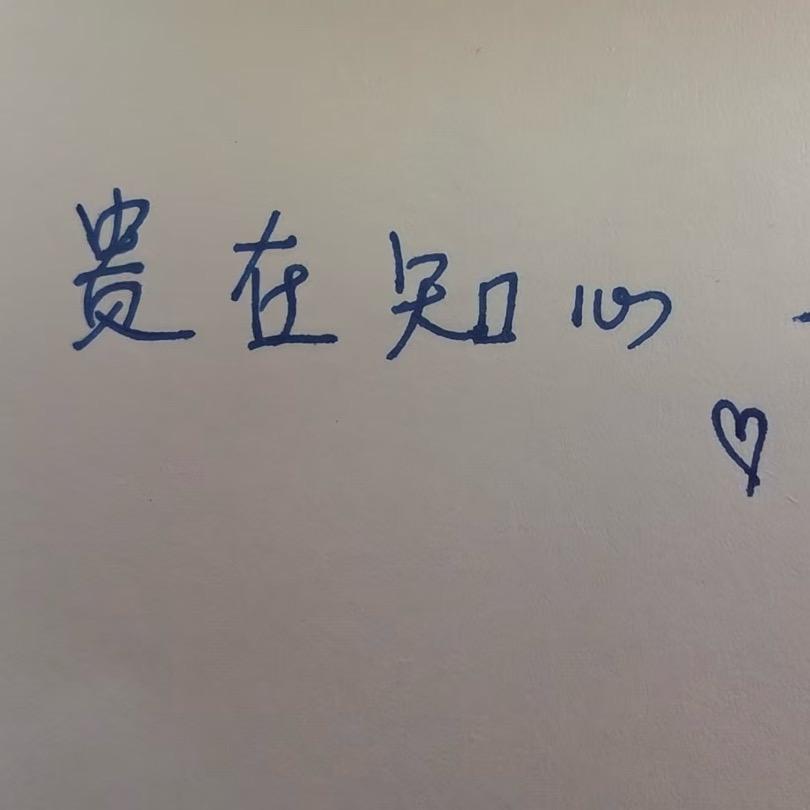 贵在知心